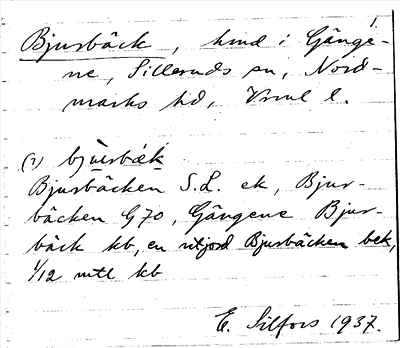 Bjursbäck, hmd i Gånge-
ne, Silleruds sn, Nord-
marks hd, Vrml l.
(2) bju̇rsbäk
Bjursbäcken S.L. ek, Bjur-
bäcken G70, Gångene Bjur-
bäck kb, en utjord Bjurbäcken bek,
1/12 mtl kb
E. Silfors 1937.